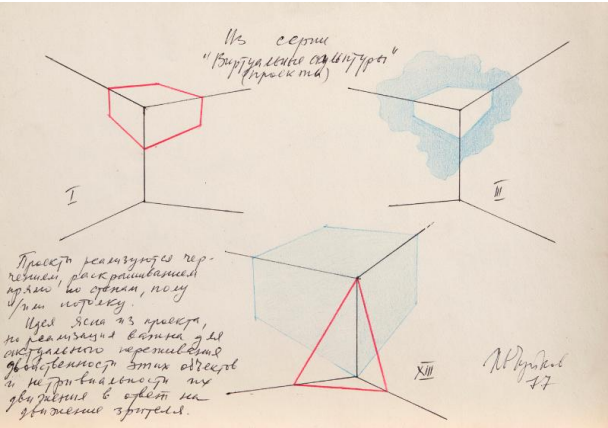 Из серии
"Виртуальные скульптуры"
(проекты)
I
III
Проекты реализуются чер-
чением, раскрашиванием
прямо по стенам, полу
и/или потолку.
Идея ясна из проекта,
но реализация важна для
актуального переживания
двойственности этих объектов
и нетривиальности их
движения в ответ на
движение зрителя.
XIII
77